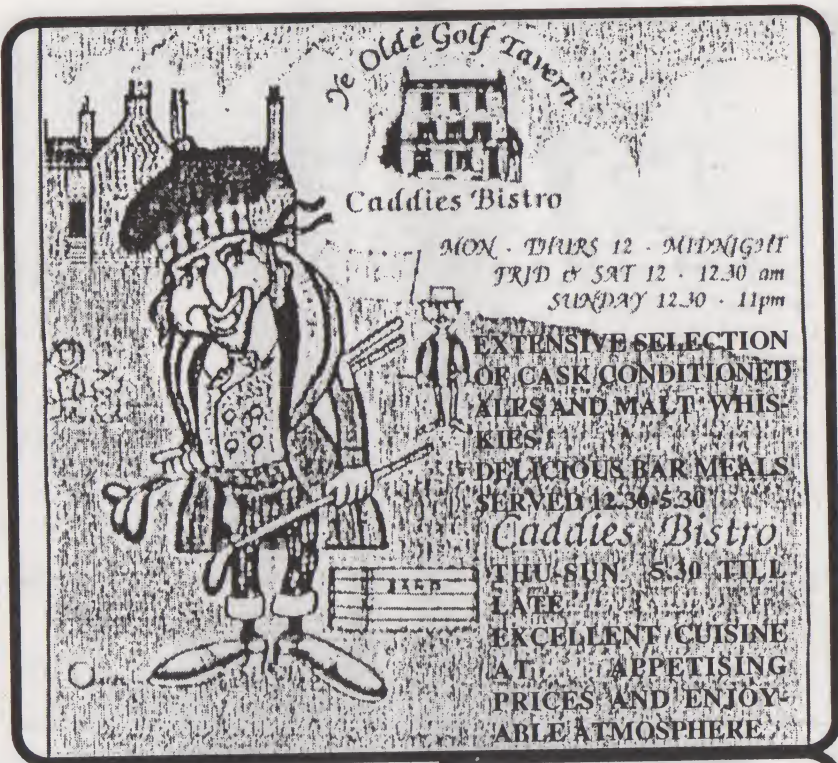 Ye Olde Golf Tavern
Caddies Bistro
MON - THURS 12 - MIDNIGHT
FRID & SAT 12 - 12.30 am
SUNDAY 12.30 - 11pm
EXTENSIVE SELECTION
OF CASK CONDITIONED
ALES AND MALT WHIS-
KIES
DELICIOUS BAR MEALS
SERVED 12.30-5.30
Caddies Bistro
THU-SUN 5.30 TILL
LATE
EXCELLENT CUISINE
AT APPETISING
PRICES AND ENJOY-
ABLE ATMOSPHERE